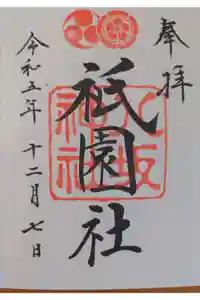 奉拝
祇園社
八坂神社
令和五年十二月七日